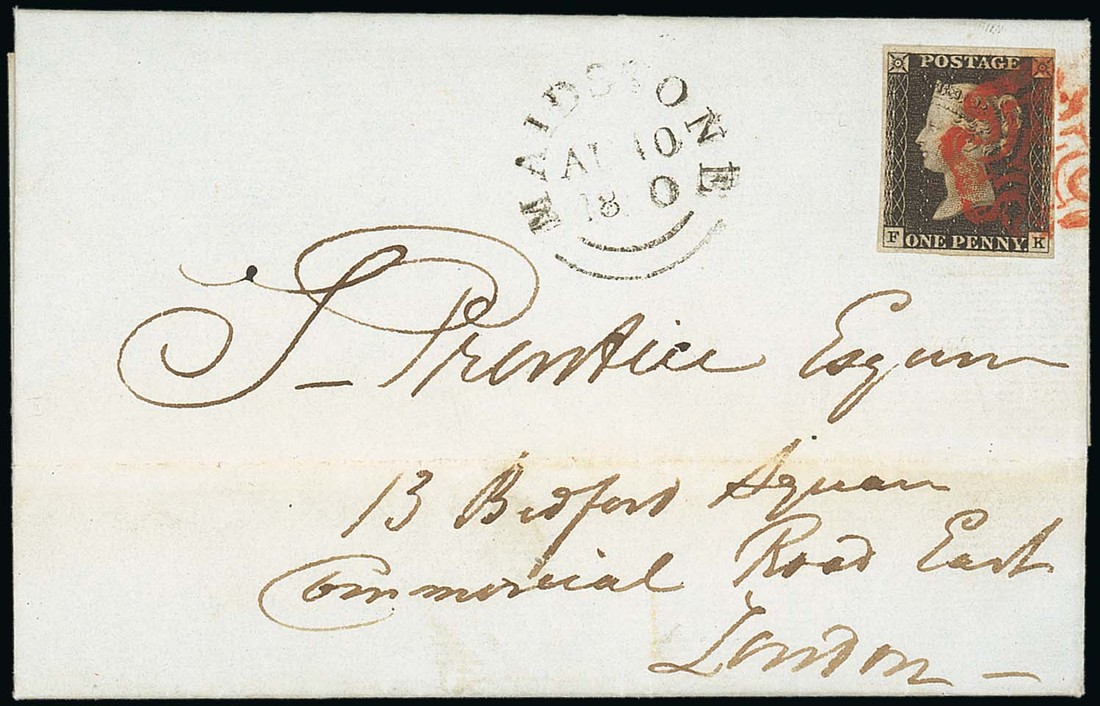 POSTAGE
MAIDSTONE
10
18 0
F ONE PENNY. K
Prentice Esquire
13 Bedford Square
Commercial Road East
London